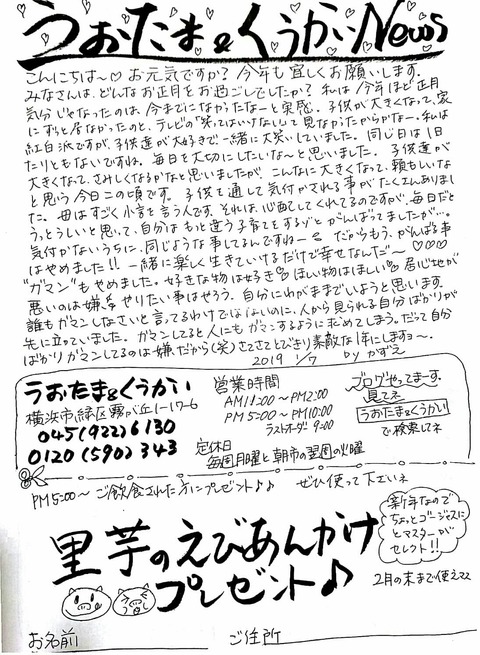 うおたま&くうかいNews
こんにちは～♡ お元気ですか? 今年も宜しくお願いします。
みなさんは、どんなお正月をお過ごしでしたか? 私は今年ほど正月
気分じゃなったのは、今までになかったなーと実感。子供が大きくなって、家
にずっと居なかったのと、テレビの"笑ってはいけない"して見なかったからかなー。私は
紅白派ですが、子供達が大好きで、一緒に大笑いしていました。同じ日は1日
たりともないですね。毎日を大切にしたいな～と思いました。子供達が
大きくなって、さみしくなるかなと思いましたが、こんなに大きくなって、頼もしいな
と思う今日この頃です。子供を通して気付かされる事がたくさんありまし
た。母はすごく小言を言う人です。それは、心配してくれてるのですが、毎日だと
うっとうしいと思って、自分はもっと違う子育てをするゾとがんばってましたが…。
気付かないうちに、同じような事してるんですねー だからもう、がんばる事
はやめました!! 一緒に楽しく生きているだけで幸せなんだ～♡♡♡
"ガマン"もやめました。好きな物は好き ほしい物はほしい 居心地が
悪いのは嫌 やりたい事はやろう。自分にわがままでいようと思います。
誰もガマンしなさいと言ってるわけではないのに、人から見られる自分ばかりが
先に立っていました。ガマンしてると人にもガマンするように求めてしまう。だって自分
ばかりガマンしてるのは嫌だから(笑)さてさてとびきり素敵な1年にしますョ～。
2019 1/7 by かずえ
うおたま&くうかい
横浜市緑区霧が丘1-17-6
045(922)6130
0120(590)343
営業時間
AM11:00～PM2:00
PM5:00～PM10:00
ラストオーダー9:00
定休日
毎週月曜と朝市の翌週の火曜
ブログやってまーす。
見てネ
うおたま&くうかい
で検索してネ
PM5:00～ご飲食された方にプレゼント♪♪ ぜひ使って下さいネ
里芋のえびあんかけ
プレゼント♪
新年なので
ちょっとゴージャスに
とマスターが
セレクト!!
2月の末まで使えます
お名前 ご住所